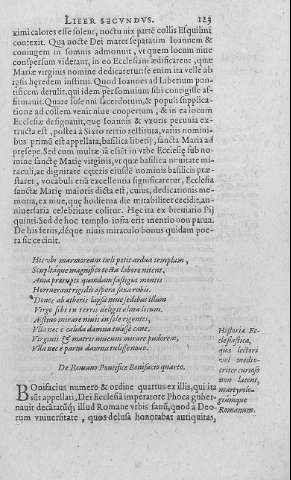 LIBER SECVNDVS. 123
ximi calores esse solent, noctu nix parte collis Esquilini
contexit. Qua nocte Dei mater separatim Ioannem &
coniugem in somnis admonuit, vt quem locum niue
conspersum viderant, in eo Ecclesiam ædificarent, quæ
Mariæ virginis nomine dedicaretur: se enim ita velle ab
ipsis hæredem institui. Quod Ioannes ad Liberium pon-
tificem detulit, qui idem per somnium sibi contigisse af-
firmauit. Quare solenni sacerdotum, & populi supplica-
tione ad collem venit niue coopertum, & in ea locum
Ecclesiæ designauit, quæ Ioannis & vxoris pecunia ex-
tructa est, postea à Sixto tertio restituta, variis nomini-
bus primò est appellata, basilica liberij, sancta Maria ad
præsepe. Sed cum multæ iã essēt in vrbe Ecclesiæ sub no-
mine sanctæ Mariæ virginis, vt quæ basilica nouitate mi-
raculi, ac dignitate cæteris eiusdē nominis basilicis præ-
staret, vocabuli etiā excellentia significaretur, Ecclesia
sanctæ Mariæ maioris dicta est, cuius, dedicationis me-
moria, ex niue, quæ hodierna die mirabiliter cecidit, an-
niuersaria celebritate colitur. Hæc ita ex breuario Pij
quinti. Sed de hoc templo infra erit mentio non parua.
De his feriis, déque niuis miraculo bonus quidam poe-
ta sic cecinit.
Hic vbi marmoreum cœli petit ardua templum,
Sculptáque magnifico tecta labore nitent,
Aruа prærupti quondam fastigia montis
Horruerant rigidis aspera saxa rubis.
Donec ab æthereis lapsa niue sedibus illum
Virgo sibi in terris delegit alma locum.
Æstiuo mirare niuit in sole vigentes,
Vlla nec è calida damna tulisse cane.
Virginis & matris niueum mirare pudorem,
Vlla nec è partu damna tulisse notæ.
De Romano Pontifice Bonifacio quarto.
Bonifacius numero & ordine quartus ex illis, qui ita
sūt appellati, Dei Ecclesiā imperatore Phoca guber-
nauit decăratúsq; illud Romanæ vrbis fanū, quod à Deo-
rum vniuersitate, quos delusa honorabat antiquitas,
Historia Ec-
clesiastica,
quā lectori
vel medio-
criter curioso
non latent,
martyrolo-
giumque
Romanum.